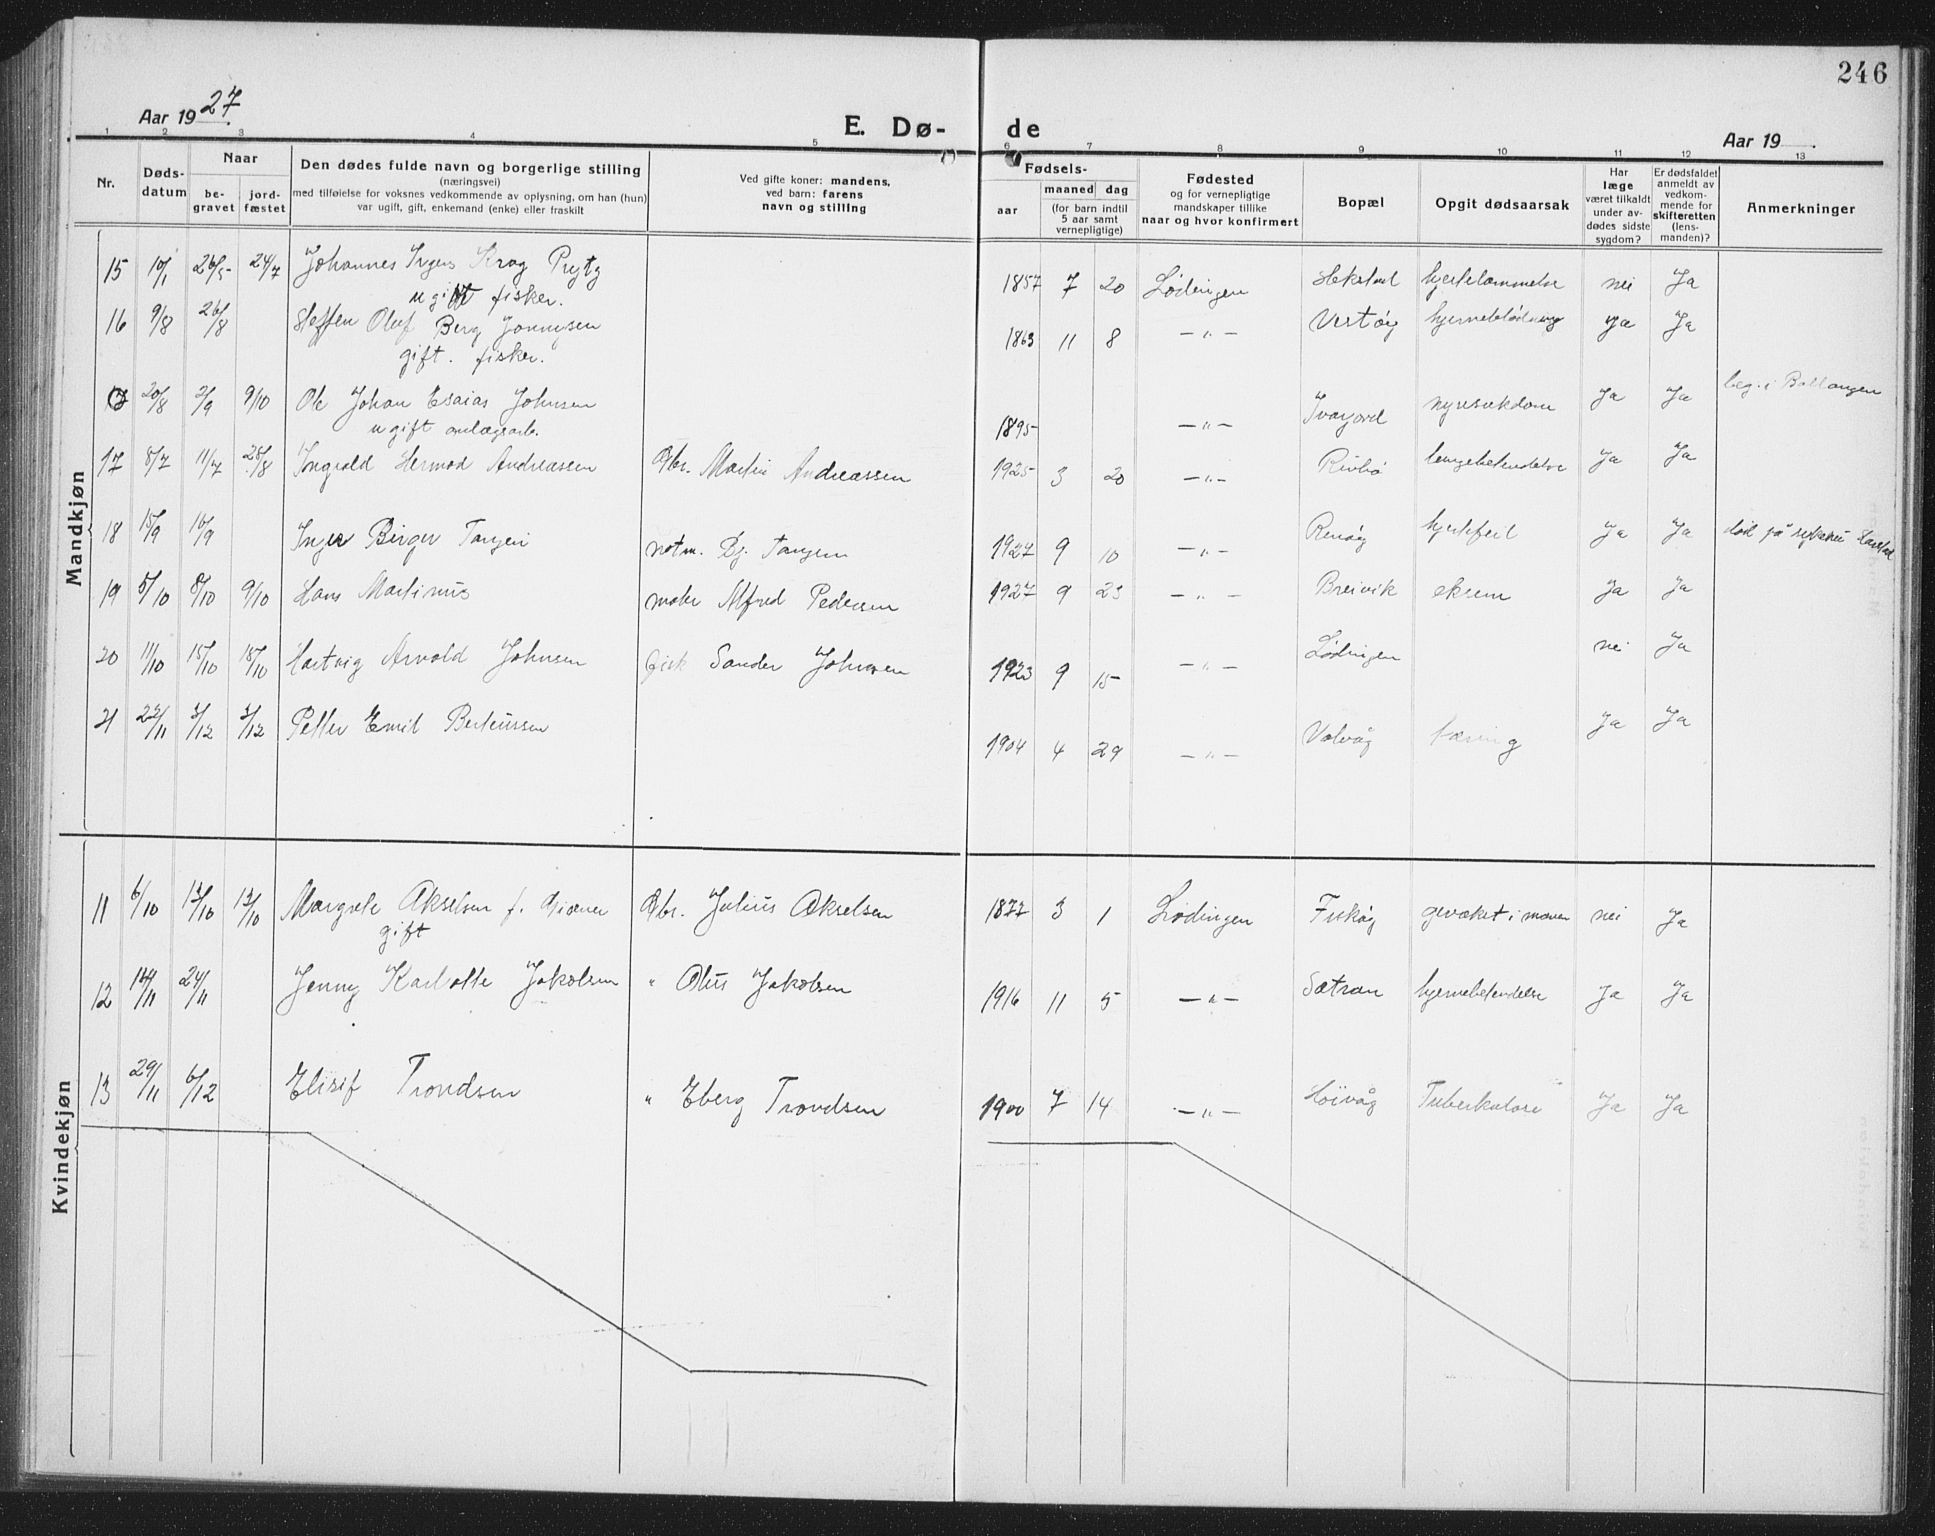 246
Aar 1927.
E. Dø-
de
Aar 19
1 2 3 4 5 6 7 8 9 10 11 12 13
Nr.
Døds-
datum
Naar
be-
gravet
jord-
fæstet
Den dødes fulde navn og borgerlige stilling
(næringsvei)
med tilføielse for voksnes vedkommende av oplysning, om han (hun)
var ugift, gift, enkemand (enke) eller fraskilt
Ved gifte koner: mandens,
ved barn: farens
navn og stilling
Fødsels-
aar
maaned dag
(for barn indtil
5 aar samt
vernepligtige)
Fødested
og for vernepligtige
mandskaper tillike
naar og hvor konfirmert
Bopæl
Opgit dødsaarsak
Har
læge
været tilkaldt
under av-
dødes sidste
sygdom?
Er dødsfaldet
anmeldt av
vedkom-
mende for
skifteretten
(lens-
manden)?
Anmerkninger
Mandkjøn
15 10/1 26/5 24/7 Johannes Krag 1857 7 20 Lødingen nei Ja
ugift fisker.
16 9/8 26/8 Steffen Oluf Berg 1863 11 8 — „ — ja Ja
gift. fisker.
20/8 2/9 9/10 Ole Johan Esaias Johnsen 1895 — „ — Ja Ja beg. i Ballangen
ugift
17 8/7 11/7 28/8 Ingvald Hermod Andreassen Gbr. Martin Andreassen 1925 3 20 — „ — Ja Ja
18 15/9 16/9 Birger Tangen Tangen 1927 9 10 — „ — hjertefeil Ja Ja
19 5/10 8/10 9/10 Hans Martinus Alfred Pedersen 1927 9 23 — „ — Breivik eksem Ja Ja
20 11/10 15/10 18/10 Hartvig Arvold Johnsen fisk Sander Johnsen 1923 9 15 — „ — Lødingen nei Ja
21 22/11 3/12 3/12 Petter Emil Berteussen 1904 4 29 — „ — Valvåg tæring Ja Ja
Kvindekjøn
11 6/10 13/10 13/10 Margrete Akselsen f. Gbr. Julius Akselsen 1877 3 1 Lødingen nei Ja
gift
12 24/11 Jenny Karlotte Jakobsen „ Olus Jakobsen 1916 11 5 — „ — Sætran hjernebetendelse Ja Ja
13 29/11 6/12 Elisif Trondsen „ Eberg Trondsen 1900 7 14 — „ — Høivåg Tuberkulose Ja Ja